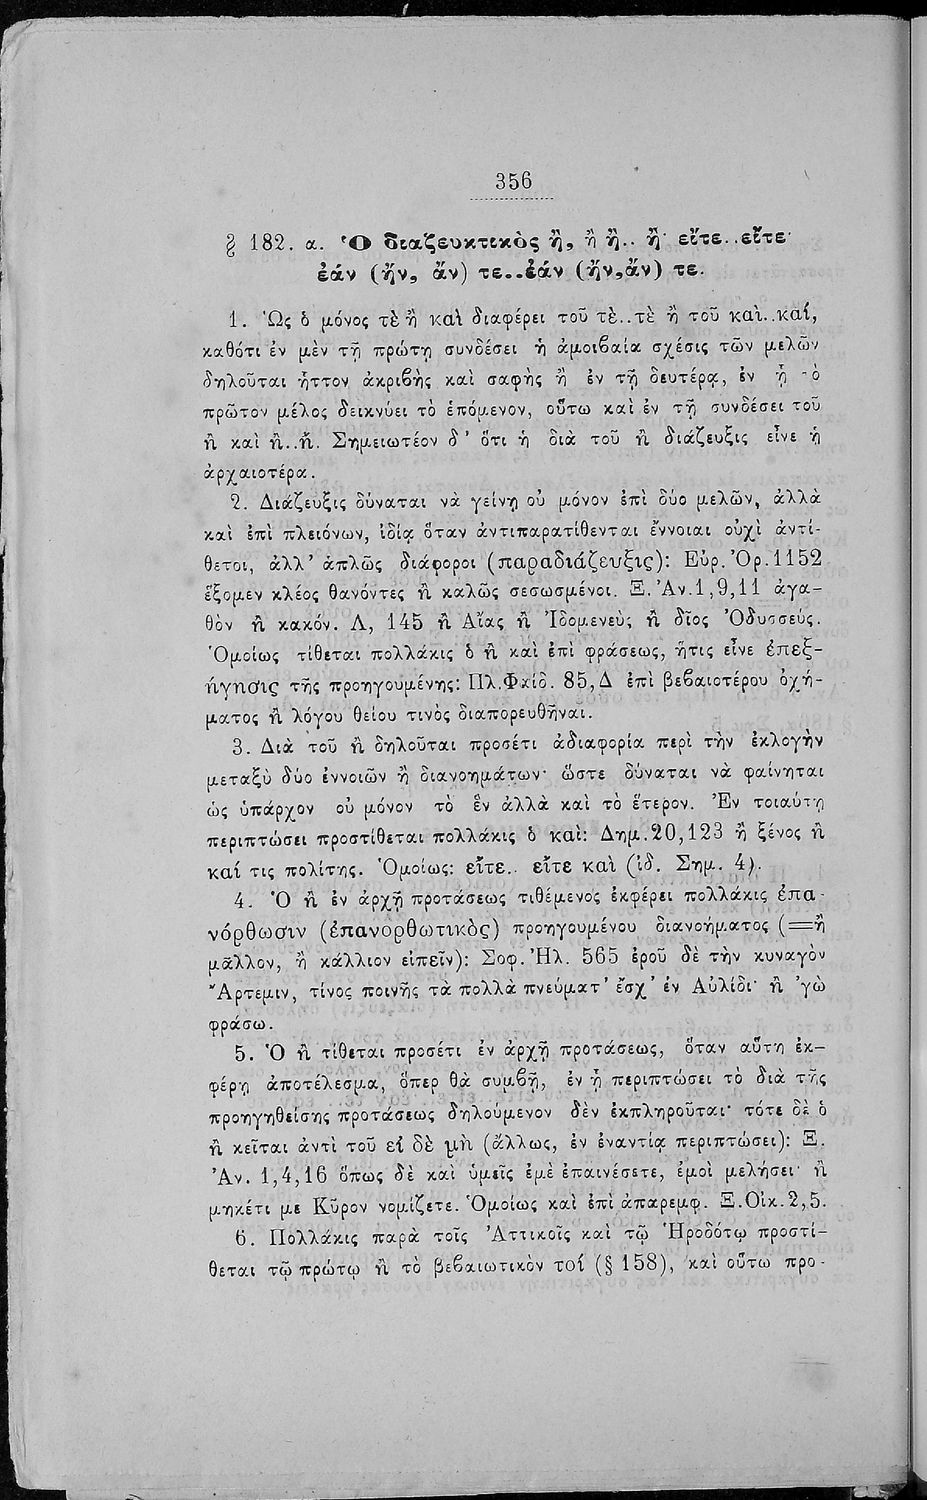 356
§ 182. α. Ὁ διαζευκτικὸς ἤ, ἢ ἤ.. ἤ· εἴτε..εἴτε·
ἐάν (ἤν, ἄν) τε..ἐάν (ἤν,ἄν) τε.
1. Ὡς ὁ μόνος τὲ ἢ καὶ διαφέρει τοῦ τὲ..τὲ ἢ τοῦ καὶ..καί,
καθότι ἐν μὲν τῇ πρώτῃ συνδέσει ἡ ἀμοιβαία σχέσις τῶν μελῶν
δηλοῦται ἧττον ἀκριβὴς καὶ σαφὴς ἢ ἐν τῇ δευτέρᾳ, ἐν ᾗ τὸ
πρῶτον μέλος δεικνύει τὸ ἑπόμενον, οὕτω καὶ ἐν τῇ συνδέσει τοῦ
ἢ καὶ ἢ..ἤ. Σημειωτέον δ' ὅτι ἡ διὰ τοῦ ἢ διάζευξις εἶνε ἡ
ἀρχαιοτέρα.
2. Διάζευξις δύναται νὰ γείνῃ οὐ μόνον ἐπὶ δύο μελῶν, ἀλλὰ
καὶ ἐπὶ πλειόνων, ἰδίᾳ ὅταν ἀντιπαρατίθενται ἔννοιαι οὐχὶ ἀντί-
θετοι, ἀλλ' ἁπλῶς διάφοροι (παραδιάζευξις): Εὐρ. Ὀρ. 1152
ἕξομεν κλέος θανόντες ἢ καλῶς σεσωσμένοι. Ξ. Ἀν.1,9,11 ἀγα-
θὸν ἢ κακόν. Λ, 145 ἢ Αἴας ἢ Ἰδομενεὺς ἢ δῖος Ὀδυσσεύς.
Ὁμοίως τίθεται πολλάκις ὁ ἢ καὶ ἐπὶ φράσεως, ἥτις εἶνε ἐπεξ-
ήγησις τῆς προηγουμένης: Πλ.Φαίδ. 85,Δ ἐπὶ βεβαιοτέρου ὀχή-
ματος ἢ λόγου θείου τινὸς διαπορευθῆναι.
3. Διὰ τοῦ ἢ δηλοῦται προσέτι ἀδιαφορία περὶ τὴν ἐκλογὴν
μεταξὺ δύο ἐννοιῶν ἢ διανοημάτων· ὥστε δύναται νὰ φαίνηται
ὡς ὑπάρχον οὐ μόνον τὸ ἓν ἀλλὰ καὶ τὸ ἕτερον. Ἐν τοιαύτῃ
περιπτώσει προστίθεται πολλάκις ὁ καὶ: Δημ.20,123 ἢ ξένος ἢ
καί τις πολίτης. Ὁμοίως: εἴτε.. εἴτε καὶ (ἰδ. Σημ. 4).
4. Ὁ ἢ ἐν ἀρχῇ προτάσεως τιθέμενος ἐκφέρει πολλάκις ἐπα-
νόρθωσιν (ἐπανορθωτικὸς) προηγουμένου διανοήματος (=ἢ
μᾶλλον, ἢ κάλλιον εἰπεῖν): Σοφ. Ἠλ. 565 ἐροῦ δὲ τὴν κυναγὸν
Ἄρτεμιν, τίνος ποινῆς τὰ πολλὰ πνεύματ' ἔσχ' ἐν Αὐλίδι· ἢ 'γὼ
φράσω.
5. Ὁ ἢ τίθεται προσέτι ἐν ἀρχῇ προτάσεως, ὅταν αὕτη ἐκ-
φέρῃ ἀποτέλεσμα, ὅπερ θὰ συμβῇ, ἐν ᾗ περιπτώσει τὸ διὰ τῆς
προηγηθείσης προτάσεως δηλούμενον δὲν ἐκπληροῦται· τότε δὲ ὁ
ἢ κεῖται ἀντὶ τοῦ εἰ δὲ μὴ (ἄλλως, ἐν ἐναντίᾳ περιπτώσει): Ξ.
Ἀν. 1,4,16 ὅπως δὲ καὶ ὑμεῖς ἐμὲ ἐπαινέσετε, ἐμοὶ μελήσει· ἢ
μηκέτι με Κῦρον νομίζετε. Ὁμοίως καὶ ἐπὶ ἀπαρεμφ. Ξ.Οἰκ.2,5.
6. Πολλάκις παρὰ τοῖς Ἀττικοῖς καὶ τῷ Ἡροδότῳ προστί-
θεται τῷ πρώτῳ ἢ τὸ βεβαιωτικὸν τοί (§ 158), καὶ οὕτω προ-